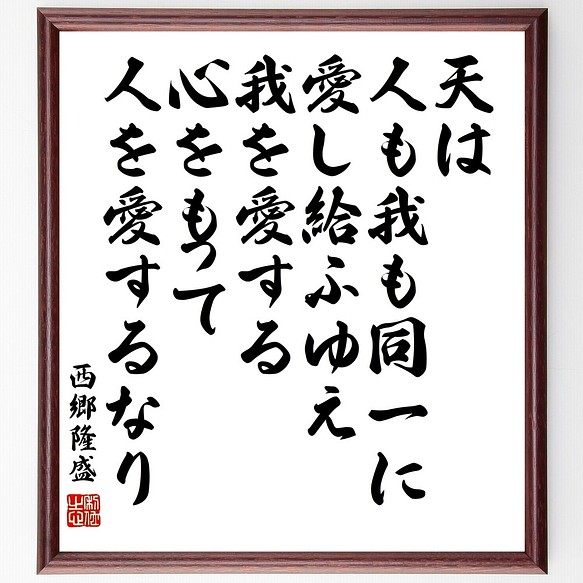 天は
人も我も同一に
愛し給ふゆえ
我を愛する
心をもって
人を愛するなり
西郷隆盛